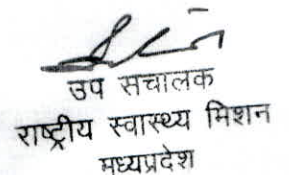 उप सचालक
राष्ट्रीय स्वास्थ्य मिशन
मध्यप्रदेश